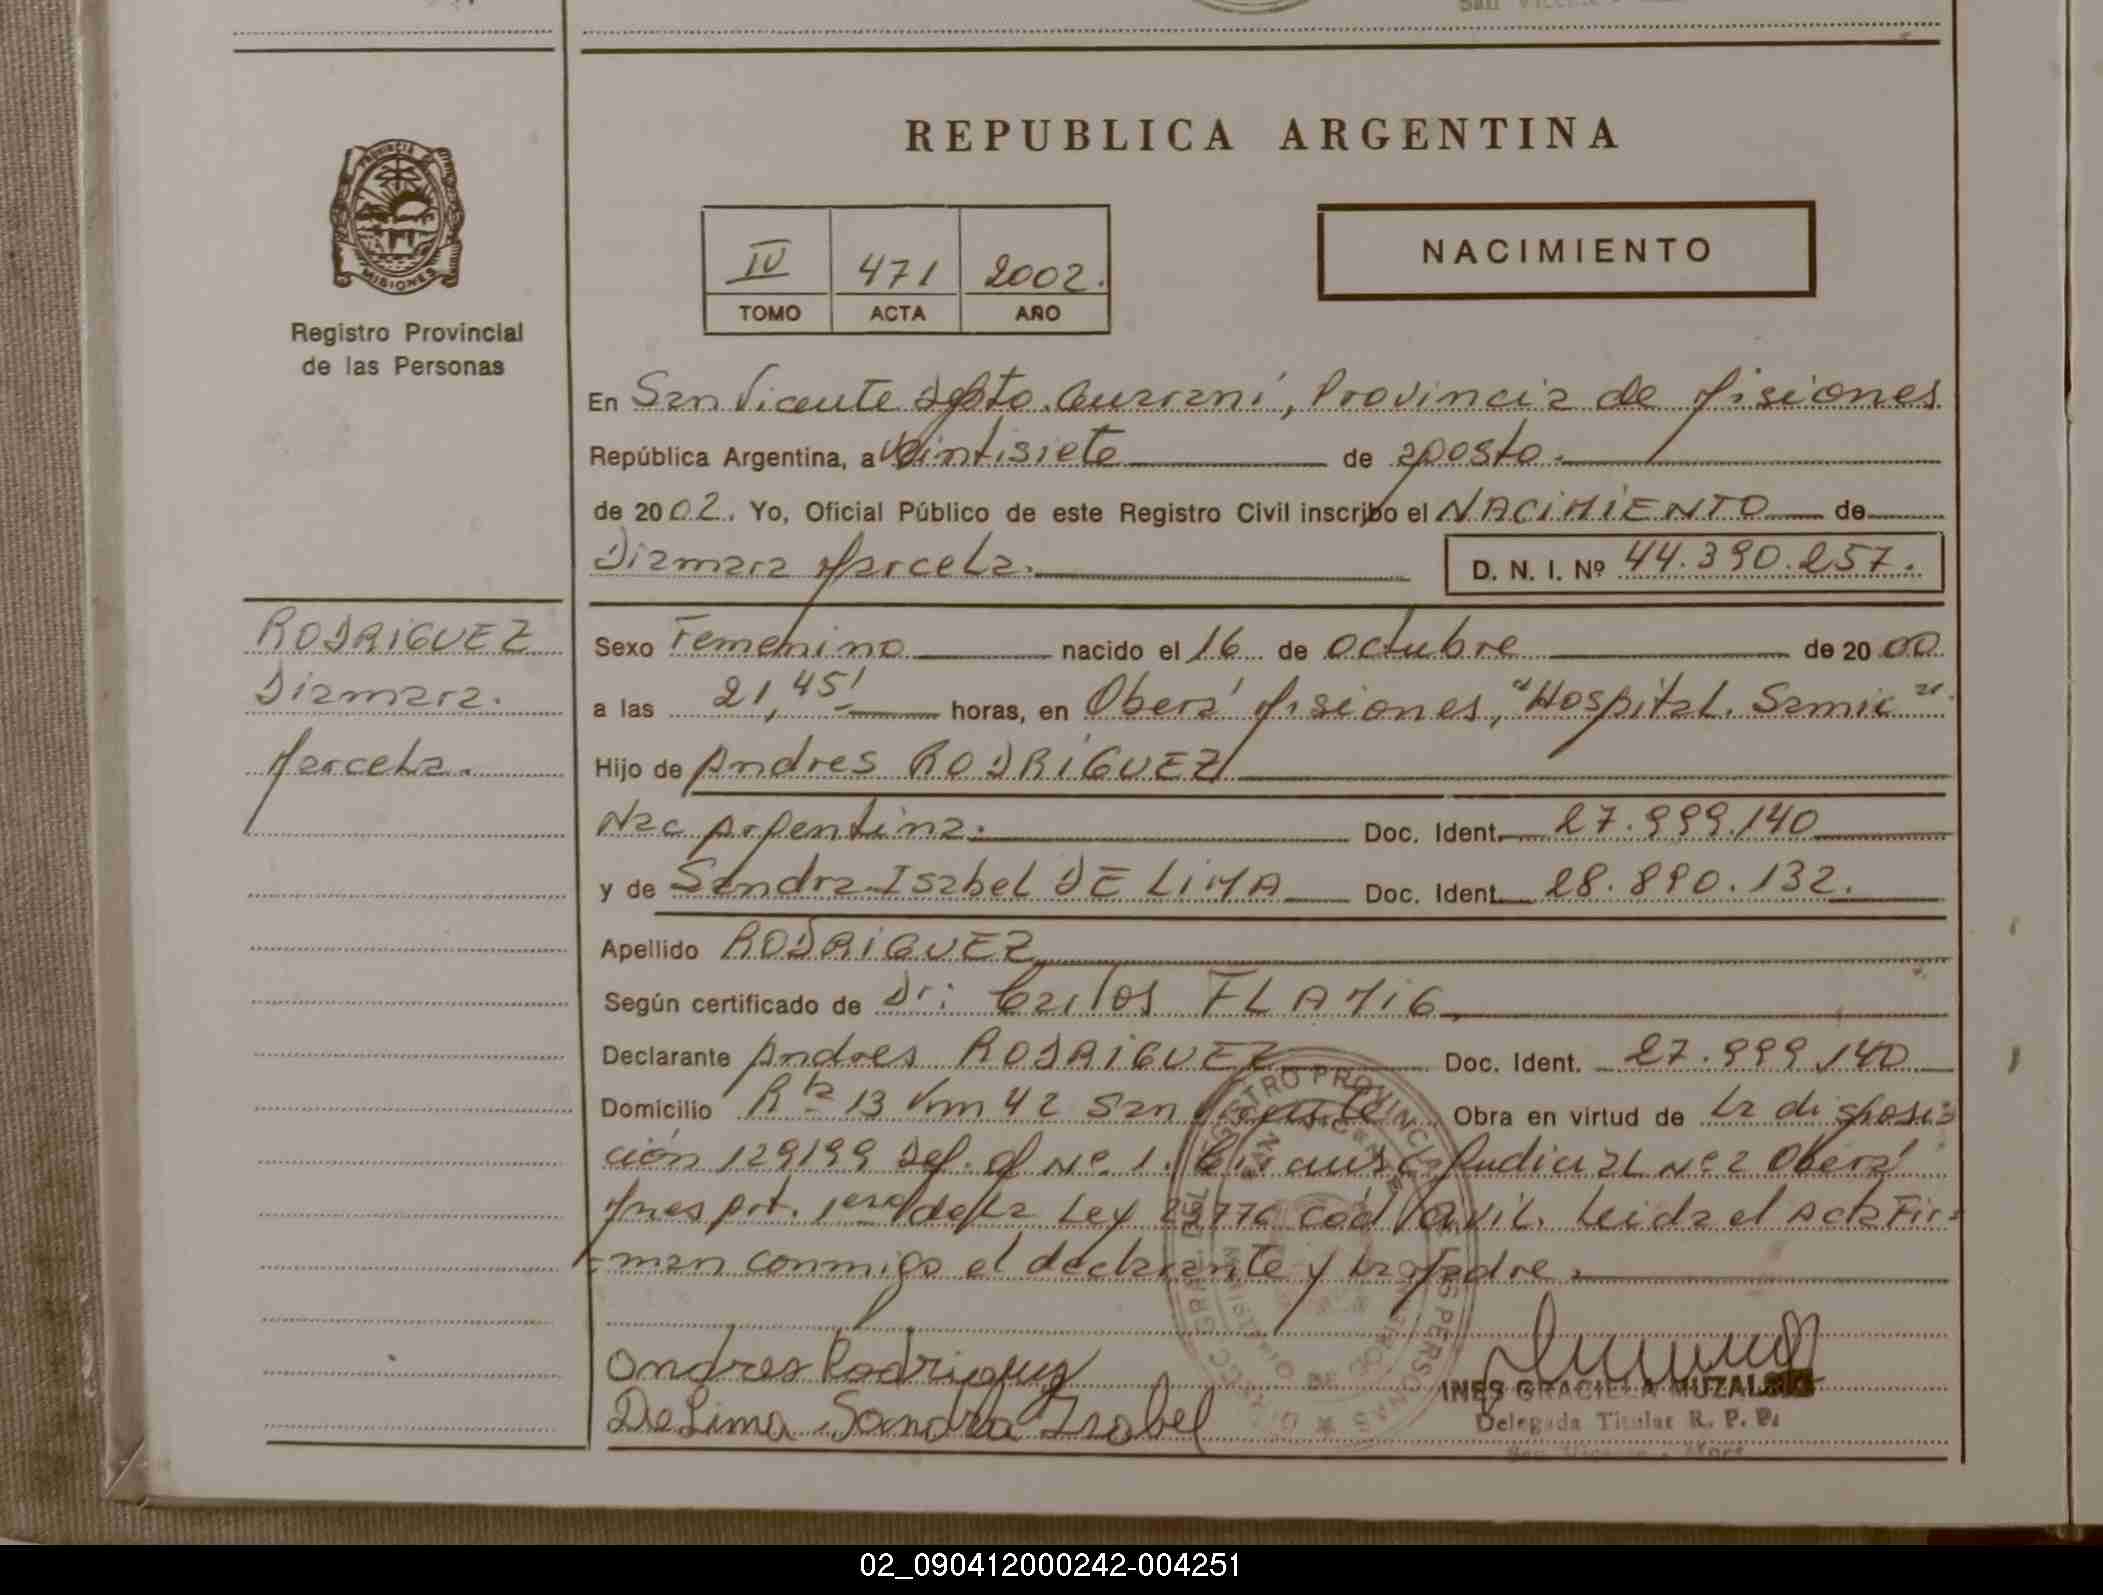 REPUBLICA ARGENTINA
PROVINCIA DE
MISIONES
Registro Provincial
de las Personas
IV 471 2002.
TOMO ACTA AÑO
NACIMIENTO
En San Vicente Dpto. Guarani, Provincia de Misiones
República Argentina, a Veintisiete de agosto.
de 2002. Yo, Oficial Público de este Registro Civil inscribo el NACIMIENTO de
Diamara Marcela.
D. N. I. Nº 44.390.257.
RODRIGUEZ
Diamara.
Marcela.
Sexo Femenino nacido el 16 de octubre de 2000
a las 21,45' horas, en Oberá Misiones, "Hospital. Samic".
Hijo de Andres RODRIGUEZ
Nac Argentina. Doc. Ident. 27.999.140
y de Sandra Isabel DE LIMA Doc. Ident. 28.890.132.
Apellido RODRIGUEZ
Según certificado de Dr: Carlos FLAMIG
Declarante Andres RODRIGUEZ Doc. Ident. 27.999.140
Domicilio Rta 13 Km 42 San Vicente Obra en virtud de la disposi
ción 129199 Def. Of Nº. 1. Judicial Nº 2 Oberá
Mnes Art. 1ero de la Ley Cod Civil. Leida el Acta Fir=
=man conmigo el declarante y la Madre.
Andres Rodriguez
De Lima Sandra Isabel
INES GRACIELA MUZALSKI
Delegada Titular R. P. P.
02_090412000242-004251